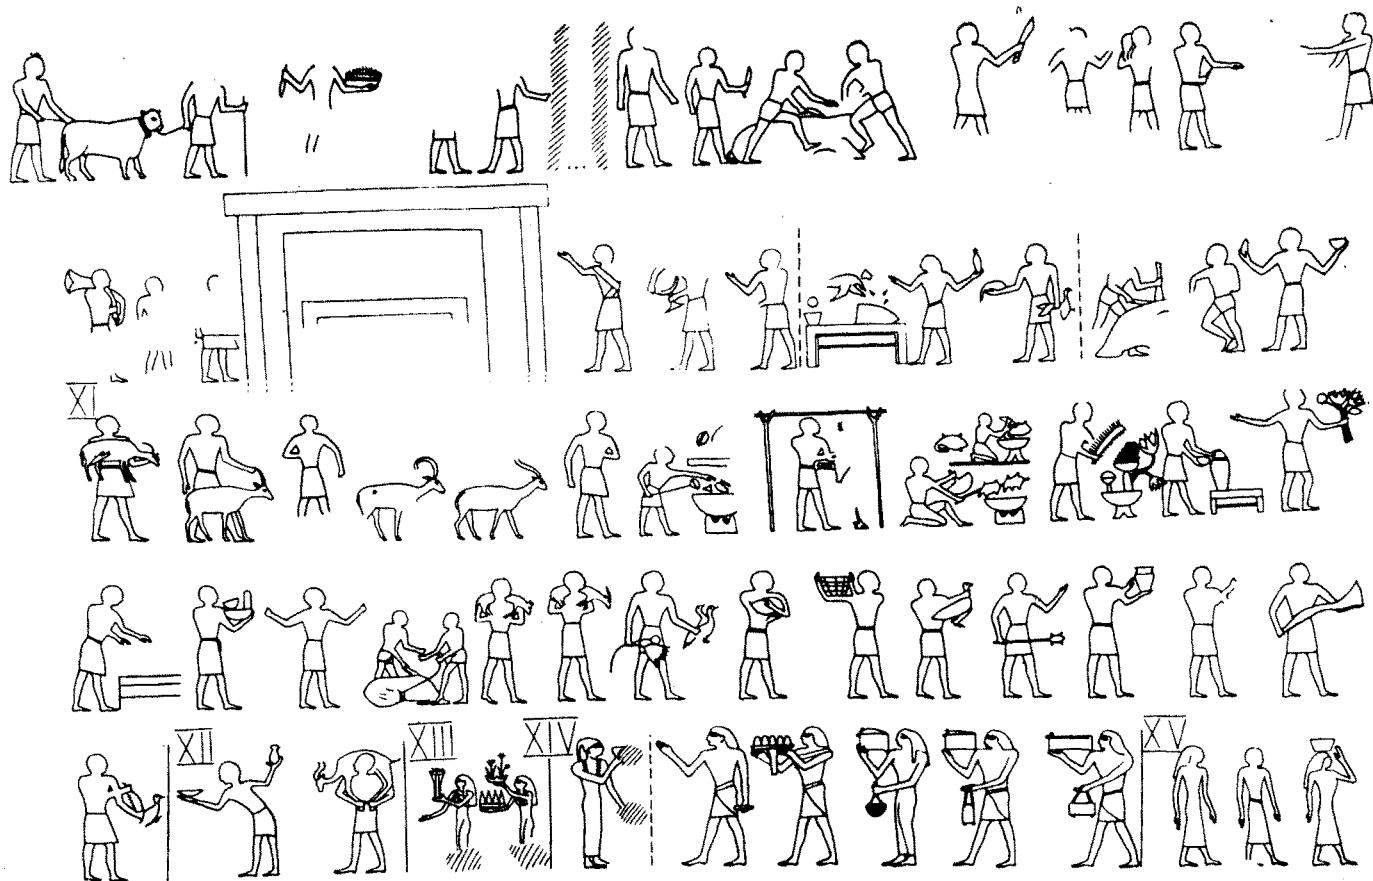 XI
XII
XIII
XIV
XV